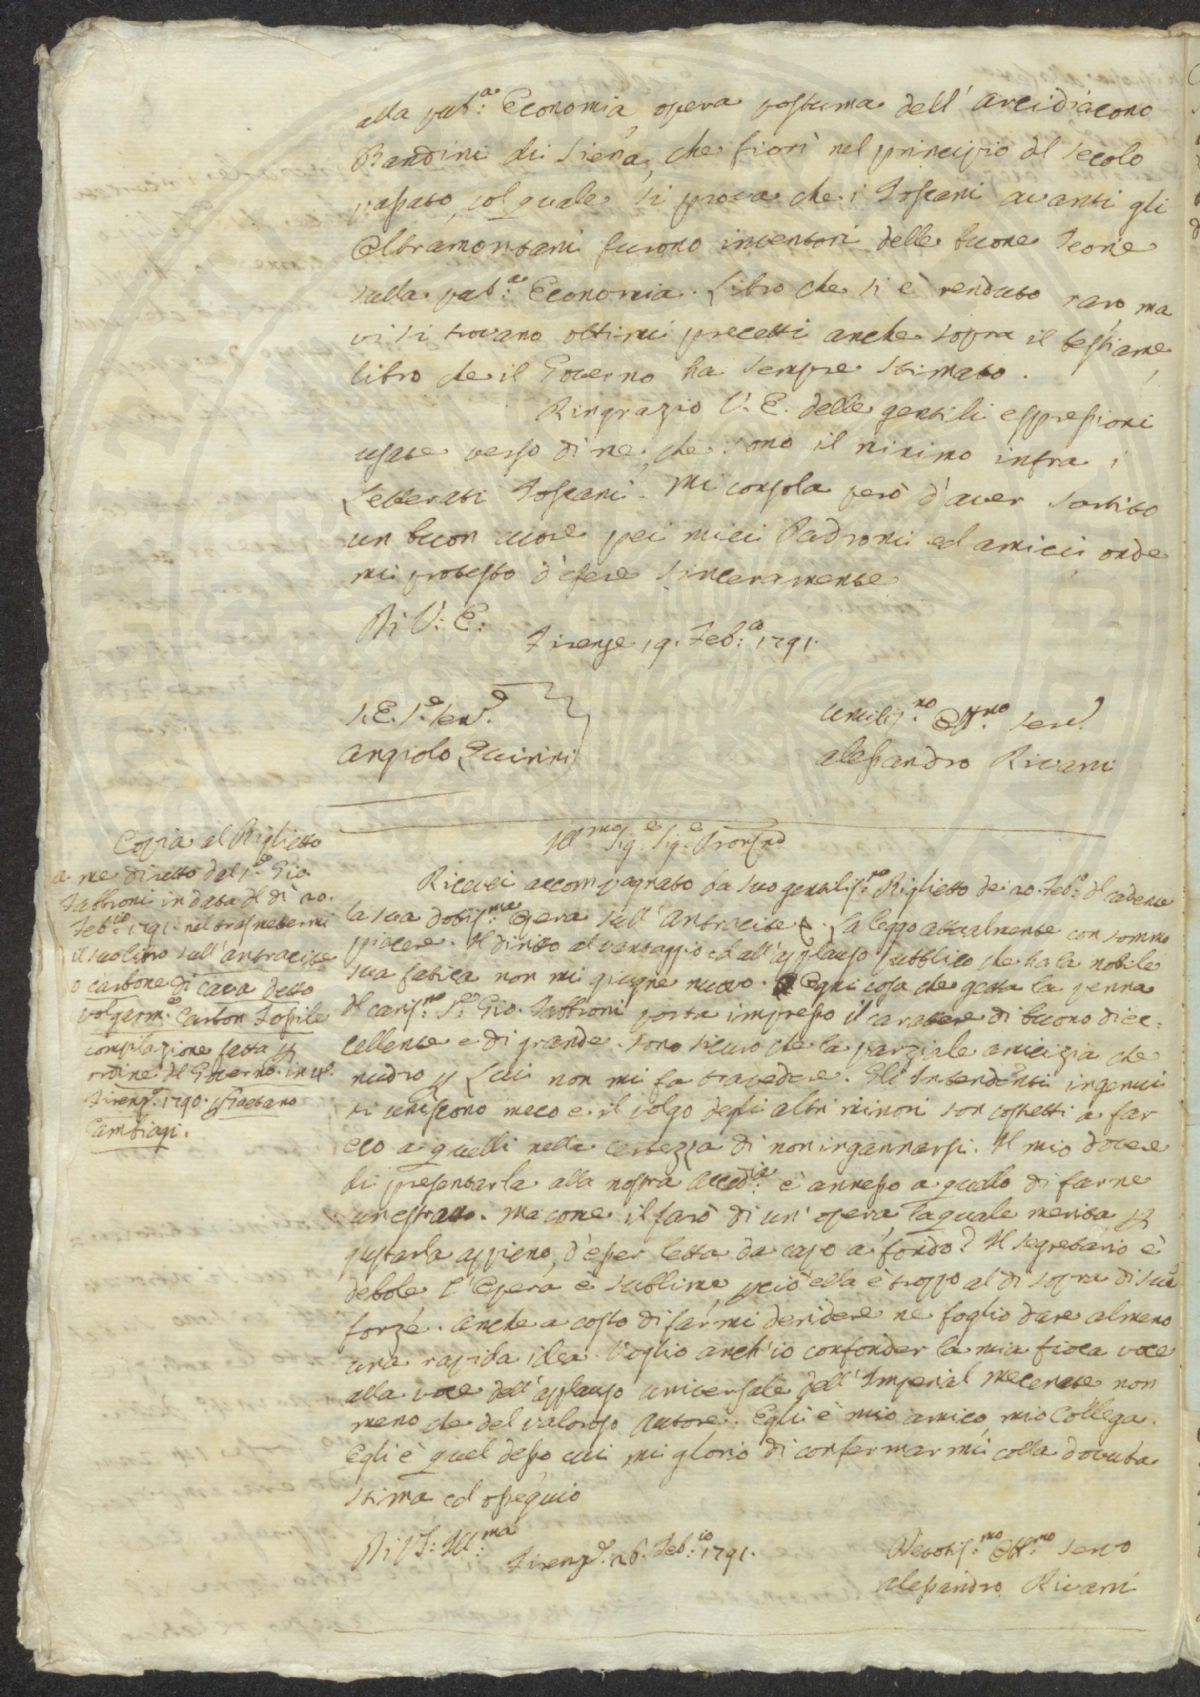 alla pub:ca Economia, opera postuma dell' Arcidiacono
Bandini di Siena, che fiorì nel principio del secolo
passato, col quale si prova che i Toscani avanti gli
Oltramontani furono inventori delle buone Teorie
sulla pub:ca Economia. Libro che si è renduto raro, ma
vi si trovano ottimi precetti anche sopra il bestiame,
libro che il Governo ha sempre stimato.
Ringrazio V. E. delle gentili espressioni
usate verso di me, che sono il minimo infra i
Letterati Toscani. Mi consola però d'aver sortito
un buon cuore pei miei Padroni ed amici, onde
mi protesto d'essere sinceramente
Di V: E:
Firenze 19. Feb:o 1791.
S. E. S:e Sen:e
Angiolo Quirini
Umilis:mo Obb:mo Serv:
Alessandro Rivani
Copia al Biglietto
a me diretto dal S:e Gio.
Fabbroni in data del dì 20.
Feb:io 1791. nel trasmetermi
il suo libro sull'antracite
o carbone di cava detto
volgarm:e Carbon Fossile
compilazione fatta per
ordine del Governo. in 4:o
Firenz:e 1790. per Gaetano
Cambiagi.
Ill:mo Sig:e Sig:e Pron Cno
Ricevei accompagnato da suo gentilis:mo Biglietto dei 20. Feb:o del cadente
la sua dottis:ma Opera sull'Antracite. La leggo attualmente con sommo
piacere. Il diritto al vantaggio ed all'applauso pubblico che ha la nobile
sua fatica non mi giugne nuovo. Ogni cosa che getta la penna
del caris:mo S:e Gio. Fabbroni porta impresso il carattere di buono di ec-
cellente e di grande. Sono sicuro che la parziale amicizia che
nudro per Lui non mi fa travedere. Gli Intendenti ingenui
si uniscono meco e il volgo degli altri minori son costretti a far
eco a quelli nella certezza di non ingannarsi. Il mio dovere
di presentarla alla nostra Accad:ia è annesso a quello di farne
un estratto. Ma come il farò di un' opera, la quale merita per
gustarla appieno, d'esser letta da capo a fondo? Il segretario è
debole l'Opera è sublime, perciò ella è troppo al di sopra di sua
forze. Anche a costo di farmi deridere ne voglio dare almeno
una rapida idea. Voglio anch'io confonder la mia fioca voce
alla voce dell'applauso universale dell'Imperial Mecenate non
meno che del valoroso Autore. Egli è mio amico, mio Collega.
Egli è quel desso cui mi glorio di confermarmi colla dovuta
stima ed ossequio
Di V.S: Ill:ma
Firenz:e 26. Feb:io 1791.
Devotis:mo Obb:mo Servo
Alessandro Rivani